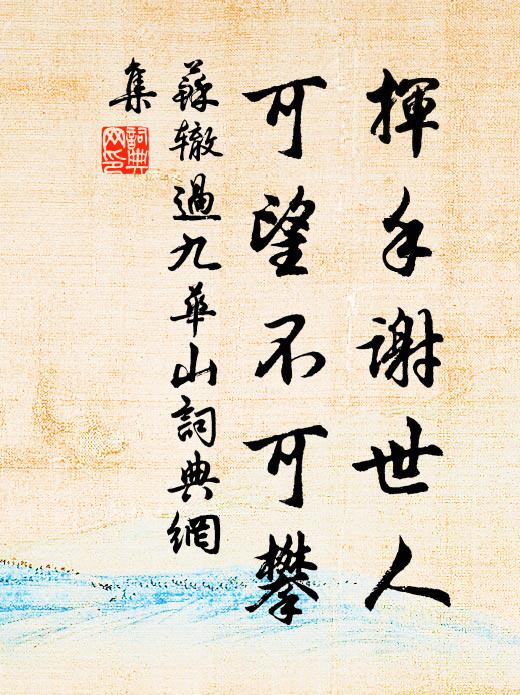 揮手謝世人
可望不可攀
蘇辙過九華山詞典網
集
詞典網印